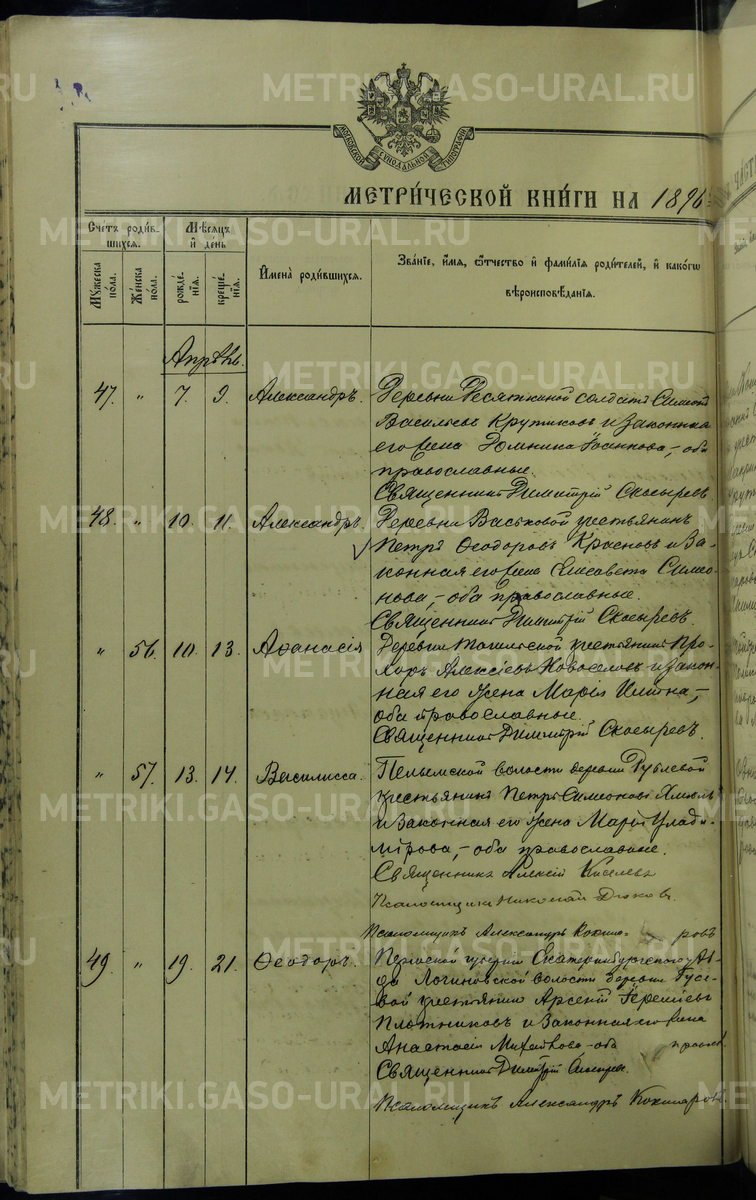 METRIKI.GASO-URAL.RU
МОСКОВСКОЙ СѴНОДАЛЬНОЙ ТИПОГРАФІИ
МЕТРИ́ЧЕСКОЙ КНИ́ГИ НА 1896
Сче́тъ роди́вшихся.
Мꙋ́жеска по́ла.
Же́нска по́ла.
Мѣ́сяцъ и де́нь
рожде́нїѧ.
креще́нїѧ.
И҆мена̀ роди́вшихсѧ.
Зва́нїе, и҆́мѧ, ѻ҆́тчество и҆ фами́лїѧ роди́телей, и҆ како́гѡ
вѣроисповѣ́данїѧ.
Апрѣль.
47. " 7. 9. Александръ. Деревни Десяткиной солдатъ Симеонъ
Васильевъ Крутиковъ и законная
его жена Домника Іоаннова,- оба
православные.
Священникъ Димитрій Скосыревъ
48. " 10. 11. Александръ. Деревни Васьковой крестьянинъ
Петръ Ѳеодоровъ Красновъ и за-
конная его жена Елисавета Симео-
нова,- оба православные.
Священникъ Димитрій Скосыревъ.
" 56. 10. 13. Аѳанасія Деревни крестьянинъ Про-
хоръ Алексіевъ Новоселовъ и закон-
ная его жена Марія,-
оба православные.
Священникъ Димитрій Скосыревъ.
" 57. 13. 14. Василисса. Пелымской волости деревни Рублевой
крестьянинъ Петръ Симеоновъ
и законная его жена Марія Влади-
мірова,- оба православные.
Священникъ Алексій Киселевъ
Псаломщикъ Николай
Псаломщикъ Александръ Кокшаровъ
49. " 19. 21. Ѳеодоръ. Пермской губерніи Екатеринбургскаго уѣз-
да Логиновской волости деревни Гусе-
вой крестьянинъ Арсеній Іереміевъ
Плотниковъ и законная его жена
Анастасія Михайлова- оба правосл
Священникъ Димитрій Скосыревъ.
Псаломщикъ Александръ Кокшаровъ.